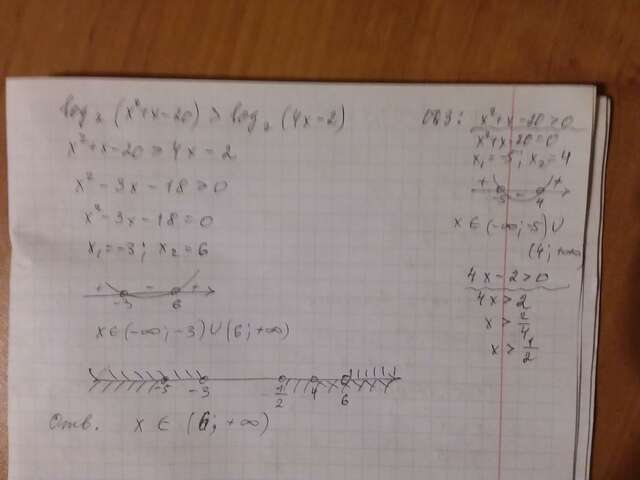 log₂ (x²+x-20) > log₂ (4x-2)
x²+x-20 > 4x-2
x²-3x-18>0
x²-3x-18=0
x₁=-3; x₂=6
+ - +
-3 6
x∈(-∞;-3)∪(6;+∞)
-5 -3 1/2 4 6
Отв. x ∈ (6;+∞)
ОДЗ: x²+x-20>0
x²+x-20=0
x₁=-5; x₂=4
+ - +
-5 4
x∈(-∞;-5)∪
(4;+∞)
4x-2>0
4x>2
x>2/4
x>1/2